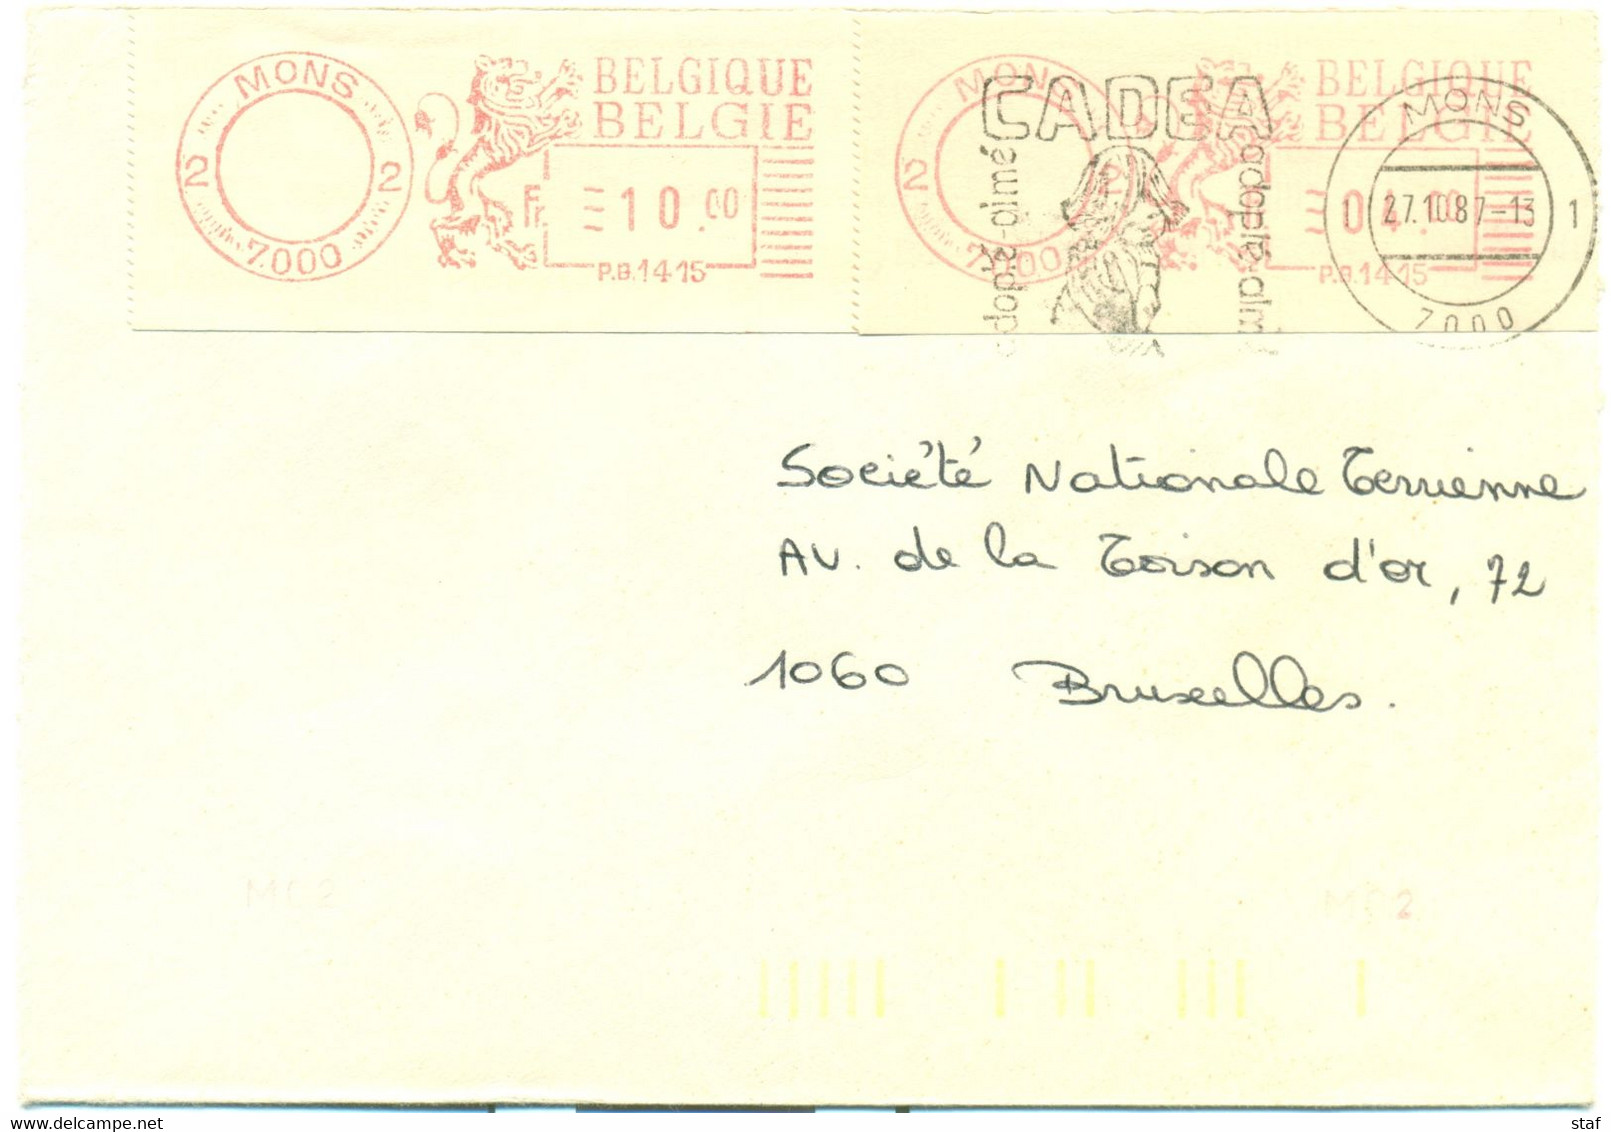 MONS
2 2
7000
BELGIQUE
BELGIE
Fr 10.00
P.B.1415
MONS
2
7000
BELGIQUE
BELGIE
04.00
P.B.1415
CADEA
MONS
1 27.10.87-13 1
7000
Société Nationale Terrienne
Av. de la Toison d'or, 72
1060 Bruxelles.
MC2
MC2
delcampe.net
staf